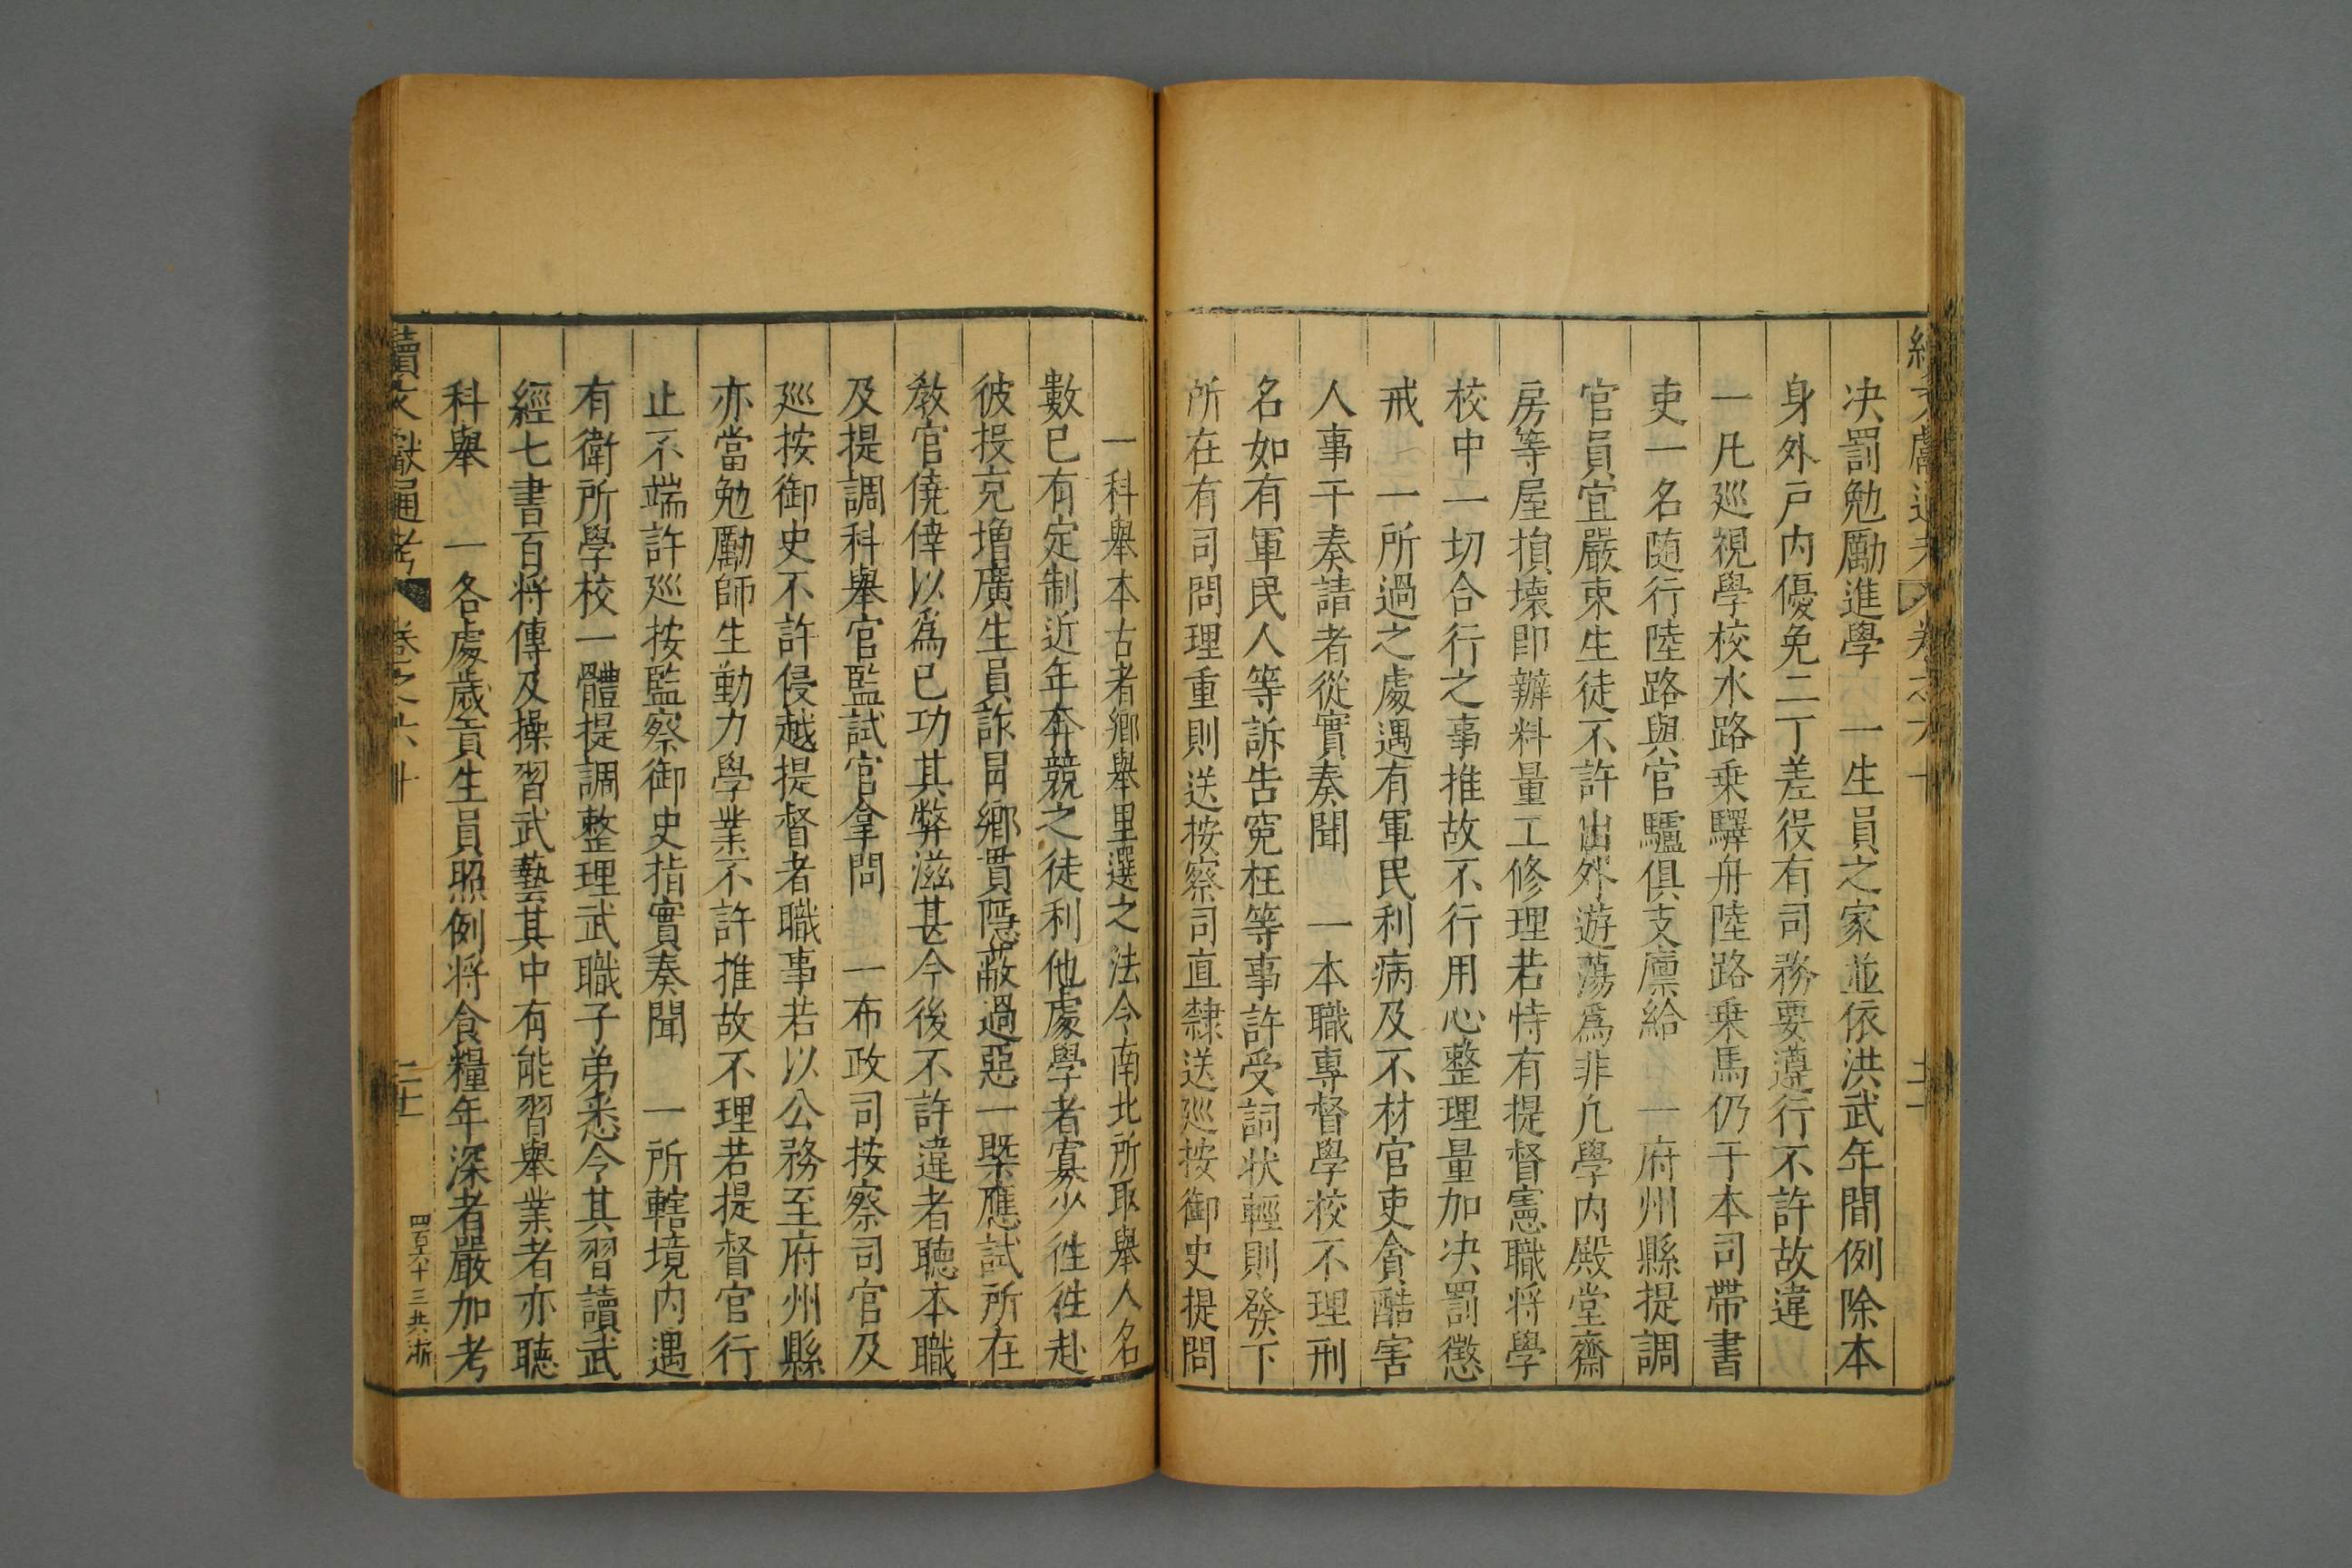 决罰勉勵進學　一生員之家並依洪武年間例除本
身外戸内優免二丁差役有司務要遵行不許故違
一凡廵視學校水路乗驛舟陸路乗馬仍于本司帶書
吏一名随行陸路與官驢俱支廪給　一府州縣提調
官員宜嚴束生徒不許出外遊蕩爲非凢學内殿堂齋
房等屋損壊即辦料量工修理若恃有提督憲職将學
校中一切合行之事推故不行用心整理量加决罰懲
戒　一所過之處遇有軍民利病及不材官吏貪酷害
人事干奏請者從實奏聞　一本職專督學校不理刑
名如有軍民人等訴告寃枉等事許受詞状輕則發下
所在有司問理重則送按察司直隸送廵按御史提問
一科舉本古者鄉舉里選之法今南北所取舉人名
數已有定制近年奔競之徒利他處學者寡少徃徃赴
彼投充增廣生員詐冐鄉貫隱蔽過惡一槩應試所在
敎官僥倖以爲已功其弊滋甚今後不許違者聽本職
及提調科舉官監試官拿問　一布政司按察司官及
廵按御史不許侵越提督者職事若以公務至府州縣
亦當勉勵師生動力學業不許推故不理若提督官行
止不端許廵按監察御史指實奏聞　一所轄境内遇
有衛所學校一體提調整理武職子弟悉令其習讀武
經七書百将傳及操習武藝其中有能習舉業者亦聽
科舉　一各處歲貢生員照例将食糧年深者嚴加考
續文獻通考　卷之六十　二十二
四百六十三共浙